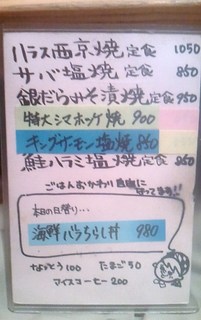 ハラス西京焼定食 1050
サバ塩焼定食 850
銀だらみそ漬焼定食 950
特大シマホッケ焼 900
キングサーモン塩焼 850
鮭ハラミ塩焼定食 850
ごはんおかわり自由に
なってます!!
本日の日替り...
海鮮バラちらし丼 980
なっとう100 たまご50
アイスコーヒー200